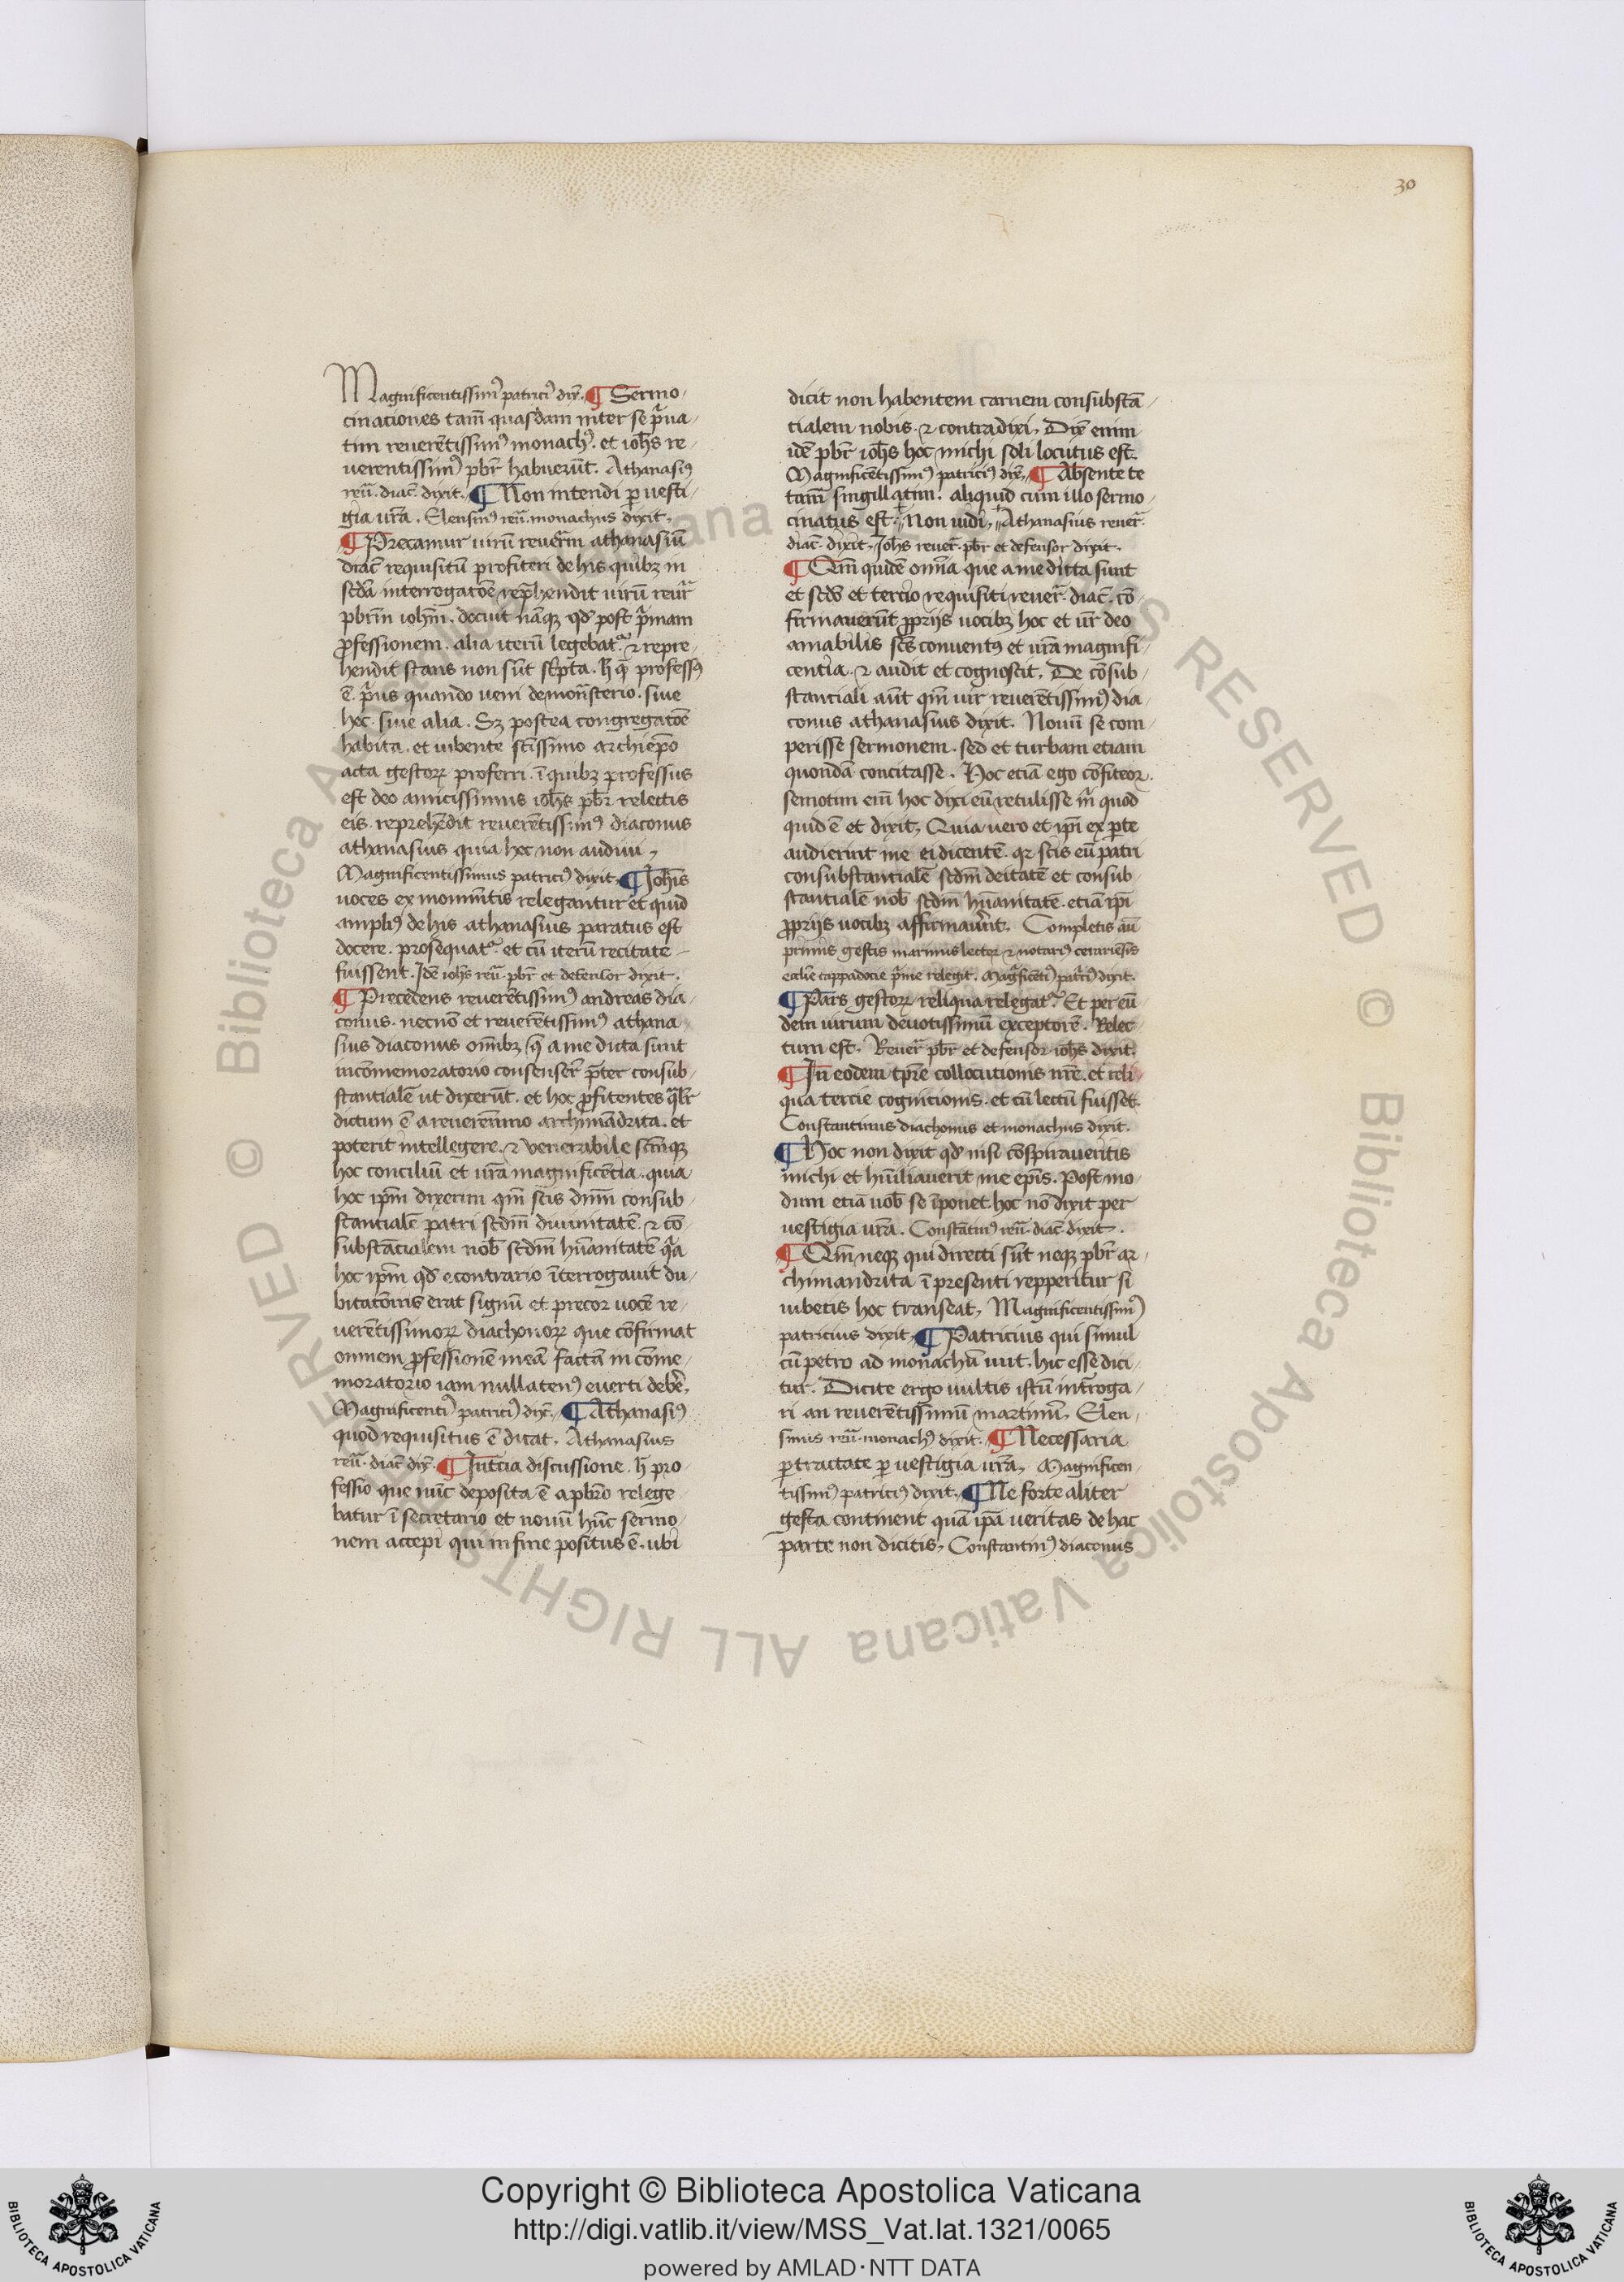 30
Magnificentissimꝰ patriciꝰ dix̄. ¶ Sermo-
cinaciones tam̄ quasdam inter se p̄ua-
tim reuerētissimꝰ monachꝰ. et ioh̄s re-
uerentissimꝰ pbr̄ habuerūt. Athanasiꝰ
reū. diac̄. dixit. ¶ Non intendi ꝑ uesti-
gia ur̄a. Elensinꝰ reū. monachus dixit,
¶ Precamur uirū reuer̄m athanasiū
diac̄ requisitū profiteri de his quibꝫ in
scd̄a interrogatōe rep̄hendit uirū reūr
pbr̄m ioh̄m. docuit nāqꝫ qd̄ post p̄mam
ꝓfessionem. alia iterū legebatᷣ. ⁊ repre-
hendit stans non sūt sc̄pta. h̄ q̄ professꝰ
ē. p̄us quando ueni de mon̄sterio. siue
hoc. siue alia. Sꝫ postea congregatōe
habita. et iubente sc̄issimo archiep̄o
acta gestoꝝ proferri. ī quibꝫ professus
est deo amicissimus ioh̄s pbr̄. relectis
eis reprehēdit reuerētissimꝰ diaconus
athanasius quia hoc non audiui,
Magnificentissimus patriciꝰ dixit. ¶ Joh̄is
uoces ex monim̄tis relegantur et quid
ampliꝰ de his athanasius paratus est
docere. prosequatᷣ. et cū iterū recitate
fuissent. Idē ioh̄s reū. pbr̄ et defensor dixit.
¶ Precedens reuerētissimꝰ andreas dia-
conus. necnō et reuerētissimꝰ athana-
sius diaconus om̄ibꝫ q̄ a me dicta sunt
in cōmemoratorio consenser̄ p̄ter consub-
stantialē ut dixerūt. et hoc ꝓfitentes q̄lr̄
dictum ē a reuerem̄mo archimādrita. et
poterit intellegere. ⁊ venerabile sc̄mqꝫ
hoc conciliū et ur̄a magnificētia. quia
hoc ip̄m dixerim qm̄ scis dn̄m consub-
stantialē patri scd̄m diuinitatē. ⁊ cō-
substācialem nob̄ scd̄m hūanitatē q̄a
hoc ip̄m qd̄ e contrario īterrogauit du-
bitatōnis erat signū et precor uocē re-
uerētissimoꝝ diachonoꝝ que cōfirmat
omnem ꝓfessionē meā factā in cōme-
moratorio iam nullatenꝰ euerti deb̄e,
Magnificentiꝰ patriciꝰ dix̄. ¶ Athanasiꝰ
quod requisitus ē dicat. Athanasius
reū. diac̄ dix̄. ¶ In t̄cia discussione. h̄ pro-
fessio que nūc deposita ē a pbr̄o relege-
batur ī secretario et nouū hūc sermo-
nem accepi qui in fine positus ē. ubi
dicit non habentem carnem consubstā-
tialem nobis. ⁊ contradixi, Dix̄ enim
idē pbr̄ ioh̄s hoc michi soli locutus est.
Magnificētissimꝰ patriciꝰ dix̄, ¶ Absente te
tam̄ singillatim. aliquid cum illo sermo-
cinatus est. Non uidi, Athanasius reuer̄.
diac̄. dixit, Joh̄s reuer̄. pbr̄ et defensor dixit.
¶ Qm̄ quidē om̄ia que a me dicta sunt
et scd̄o et tercio requisiti reuer̄. diac̄. cō-
firmauerūt ꝓprijs uocibꝫ hoc et ur̄ deo
amabilis sc̄s conuentꝰ et ur̄a magnifi-
centia. ⁊ audit et cognoscit, De cōsub-
stantiali aūt qm̄ uir reuerētissimꝰ dia-
conus athanasius dixit. Nouū se com-
perisse sermonem. sed et turbam etiam
quondā concitasse. Hoc etiā ego cōfiteor.
semotim em̄ hoc dixi eū retulisse m̄ quod
quid ē et dixit, Quia uero et ip̄i ex ꝑte
audierint me ei dicentē. qꝛ scis eū patri
consubstantialē scd̄m deitatē et consub-
stantialē nob̄ scd̄m hūanitatē. etiā ip̄i
ꝓprijs uocibꝫ affirmauer̄t. Completis aū
primis gestis marinus lector ⁊ notariꝰ cesariēsis
eccl̄ie cappadocie p̄me relegit. Mag̅ficētiꝰ patr̄iꝰ dixit.
¶ Pars gestoꝝ reliqua relegatᷣ. Et per eū-
dem uirum deuotissimū exceptorē. Relec-
tum est. Reuer̄ pbr̄ et defensor ioh̄s dixit.
¶ In eodem tp̄re collocutionis nr̄e. et reli-
qua tercie cognicionis. et cū lectū fuisset.
Constantinus diachonus et monachus dixit.
¶ Hoc non dixit qd̄ nisi cōspiraueritis
michi et hūiliauerit me ep̄is. Post mo-
dum etiā uob̄ se īponet. hoc nō dixit per
uestigia ur̄a. Constātinꝰ reū. diac̄ dixit.
¶ Qm̄ neqꝫ qui directi sūt neqꝫ pbr̄ ar-
chimandrita ī presenti repperitur si
iubetis hoc transeat, Magnificentissimꝰ
patricius dixit, ¶ Patricius qui simul
cū petro ad monachū iuit. hic esse dici-
tur. Dicite ergo uultis istū int̄roga-
ri an reuerētissimū martinū, Elen-
sinus reū. monachꝰ dixit. ¶ Necessaria
ꝑtractate ꝑ uestigia ur̄a, Magnificen-
tissimꝰ patriciꝰ dixit, ¶ Ne forte aliter
gesta continent quā ip̄a ueritas de hac
parte non dicitis, Constantinꝰ diaconus
© Biblioteca Apostolica Vaticana ALL RIGHTS RESERVED
Copyright © Biblioteca Apostolica Vaticana
http://digi.vatlib.it/view/MSS_Vat.lat.1321/0065
powered by AMLAD·NTT DATA
BIBLIOTECA APOSTOLICA VATICANA
BIBLIOTECA APOSTOLICA VATICANA